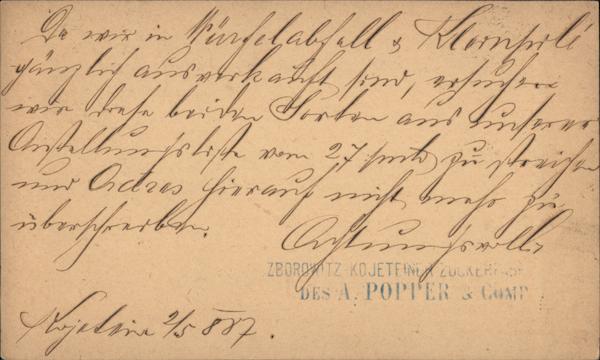 Da wir in Würfelabfall &
gänzlich ausverkauft sind, ersuchen
wir diese beiden Sorten aus unserer
Anstellungsliste vom 27 zu streichen
und hierauf nicht mehr zu
überschreiben.
Achtungsvoll
ZBOROWITZ-KOJETEINER ZUCKERFAB
DES A. POPPER & COMP
Kojetein 2/5 887.